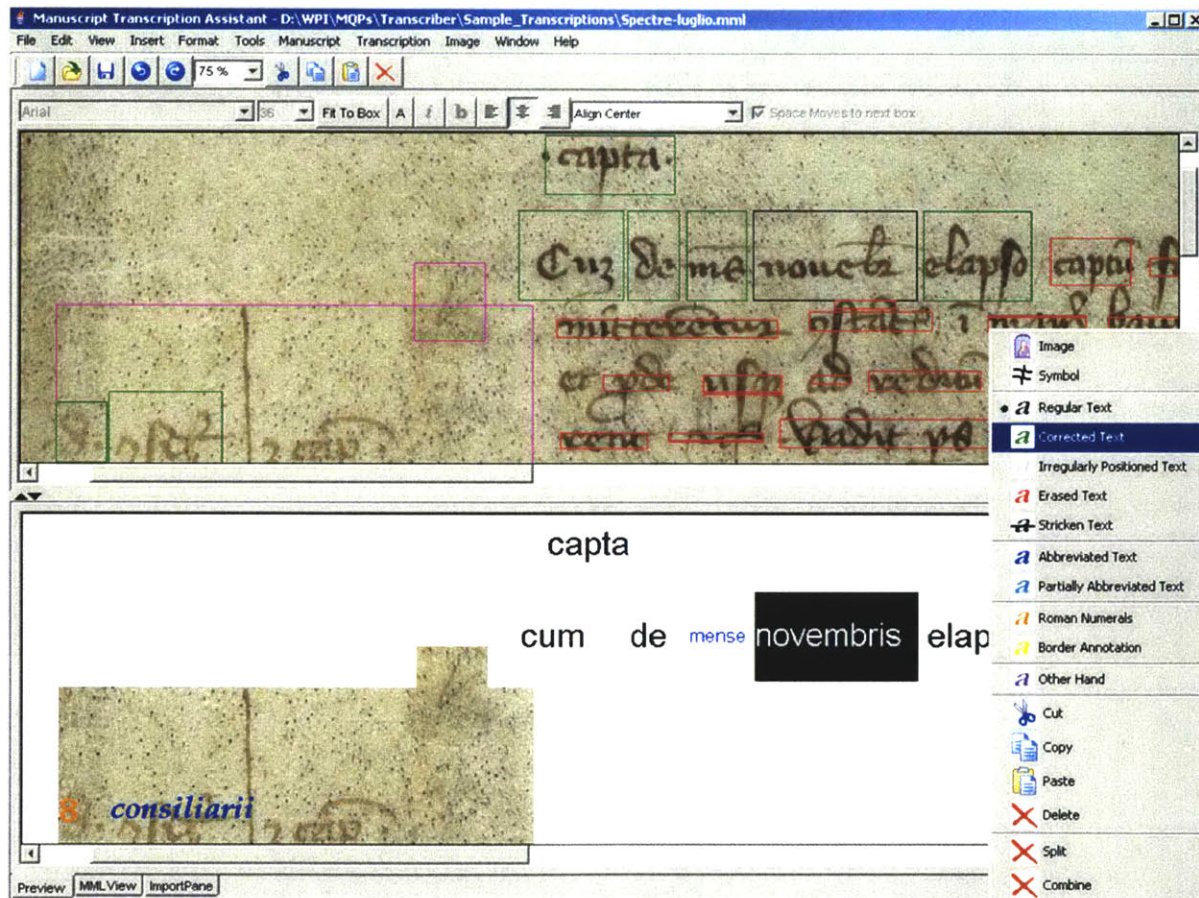 Manuscript Transcription Assistant - D:\WPI\MQPs\Transcriber\Sample_Transcriptions\Spectre-luglio.mml
File Edit View Insert Format Tools Manuscript Transcription Image Window Help
75 %
Arial 36 Fit To Box A i b Align Center Space Moves to next box
capta
Cuz de me novebr elapso captu
et
capta
cum de mense novembris elap
8 consiliarii
Image
Symbol
a Regular Text
a Corrected Text
Irregularly Positioned Text
a Erased Text
a Stricken Text
a Abbreviated Text
a Partially Abbreviated Text
a Roman Numerals
a Border Annotation
a Other Hand
Cut
Copy
Paste
Delete
Split
Combine
Preview MML View ImportPane